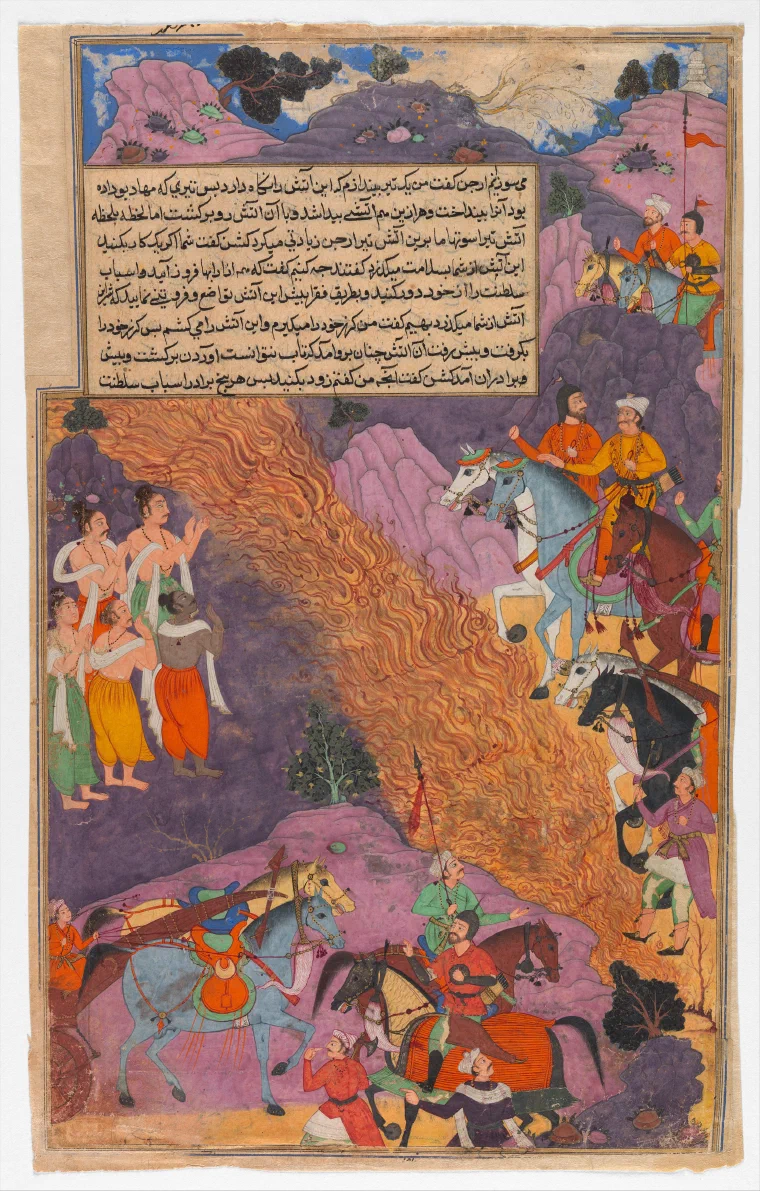 می سوزیم ارجن گفت من یک تیر بیندازم که این آتش را نگاه دارد پس تیری که مهادیو داده
بود آنرا بینداخت و هر ازین سهم آتشی پیدا شد و با آن آتش روبرو گشت اما لحظه بلحظه
آتش تیر اسوتهاما برین آتش تیر ارجن زیادتی میکرد کشن گفت شما اگر یک کار بکنید
این آتش از شما بسلامت میگذرد گفتند چه کنیم گفت که همه از ارابها فرود آید و اسباب
سلطنت را از خود دور کنید و بطریق فقرا پیش این آتش تواضع و فروتنی نمایید که شر این
آتش از شما میگذرد بهیم گفت من گرز خود را میگیرم و این آتش را می کشم پس گرز خود را
بگرفت و پیش رفت آن آتش چنان برو آمد که تاب نتوانست آوردن برگشت و پیش
برادران آمد کشن گفت آنچه من گفتم زود بکنید پس هر پنج برادر اسباب سلطنت